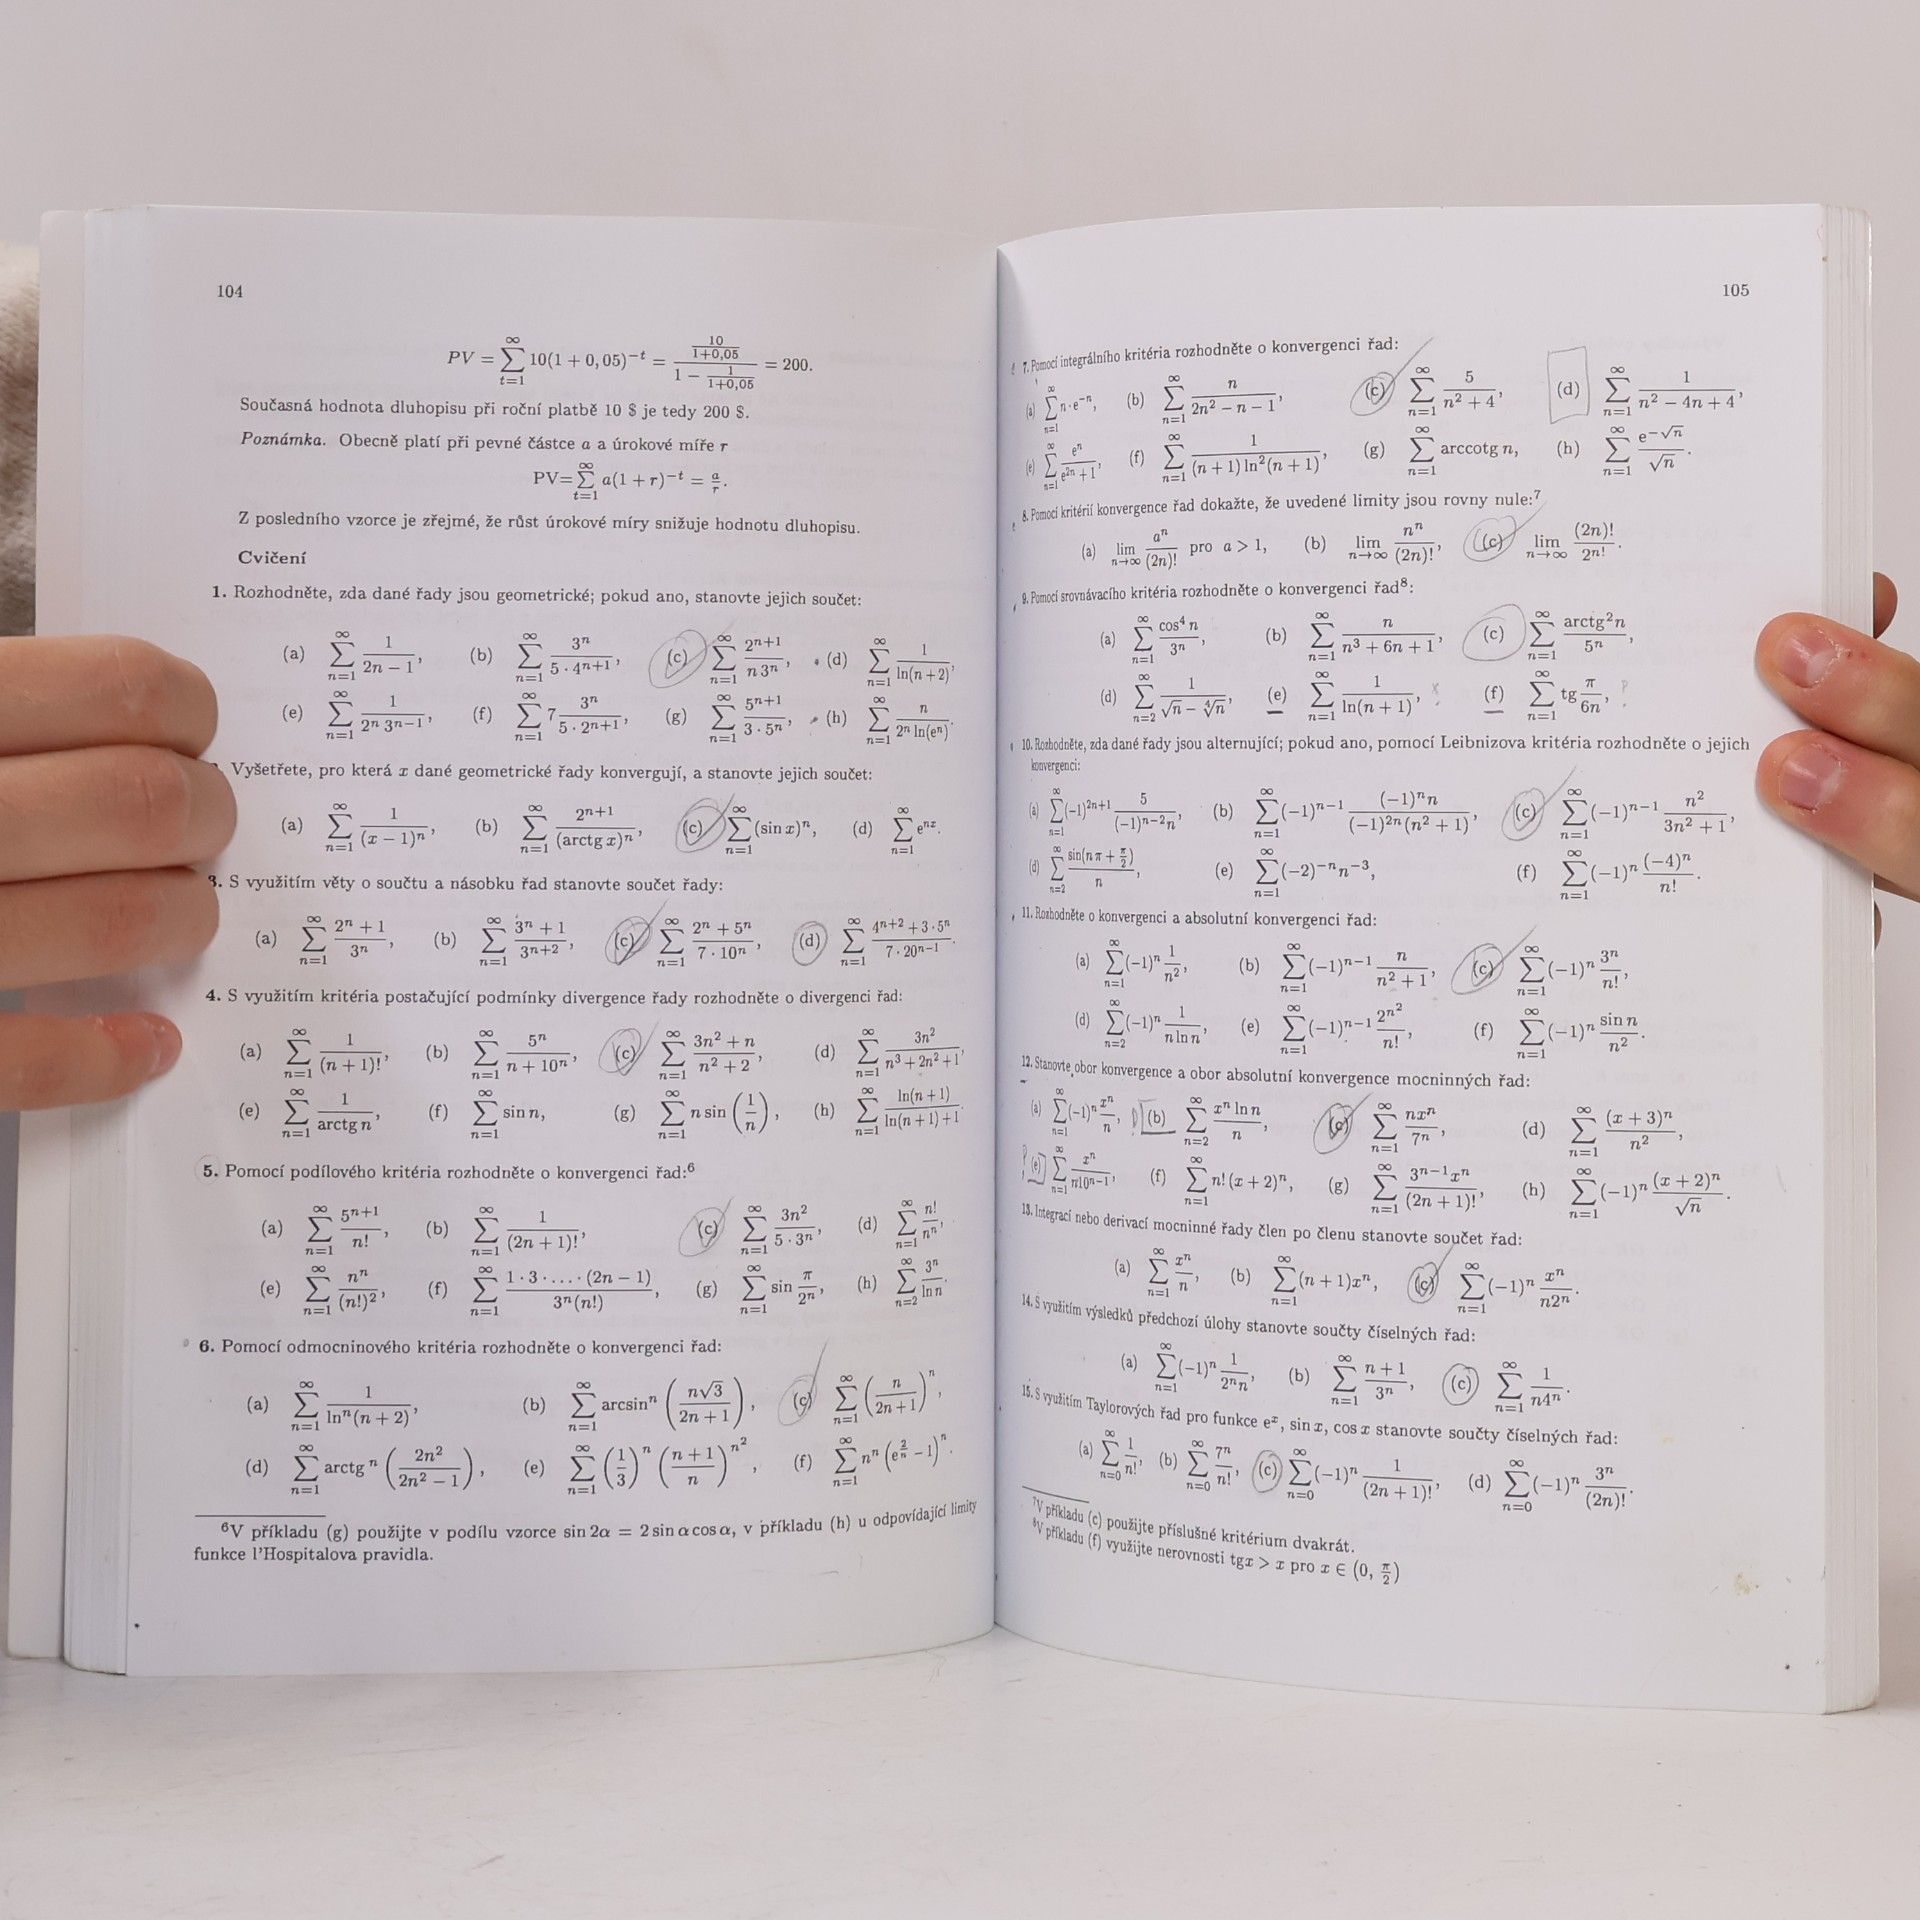 104
PV = ∑_{t=1}^{∞} 10(1 + 0,05)^{−t} = \frac{\frac{10}{1+0,05}}{1 − \frac{1}{1+0,05}} = 200.
Současná hodnota dluhopisu při roční platbě 10 $ je tedy 200 $.
Poznámka. Obecně platí při pevné částce a a úrokové míře r
PV=∑_{t=1}^{∞} a(1 + r)^{−t} = \frac{a}{r}.
Z posledního vzorce je zřejmé, že růst úrokové míry snižuje hodnotu dluhopisu.
Cvičení
1. Rozhodněte, zda dané řady jsou geometrické; pokud ano, stanovte jejich součet:
(a) ∑_{n=1}^{∞} \frac{1}{2n − 1}, (b) ∑_{n=1}^{∞} \frac{3^n}{5 · 4^{n+1}}, (c) ∑_{n=1}^{∞} \frac{2^{n+1}}{n 3^n}, (d) ∑_{n=1}^{∞} \frac{1}{ln(n + 2)},
(e) ∑_{n=1}^{∞} \frac{1}{2^n 3^{n−1}}, (f) ∑_{n=1}^{∞} 7 \frac{3^n}{5 · 2^{n+1}}, (g) ∑_{n=1}^{∞} \frac{5^{n+1}}{3 · 5^n}, (h) ∑_{n=1}^{∞} \frac{n}{2^n ln(e^n)}.
Vyšetřete, pro která x dané geometrické řady konvergují, a stanovte jejich součet:
(a) ∑_{n=1}^{∞} \frac{1}{(x − 1)^n}, (b) ∑_{n=1}^{∞} \frac{2^{n+1}}{(arctg x)^n}, (c) ∑_{n=1}^{∞} (sin x)^n, (d) ∑_{n=1}^{∞} e^{nx}.
3. S využitím věty o součtu a násobku řad stanovte součet řady:
(a) ∑_{n=1}^{∞} \frac{2^n + 1}{3^n}, (b) ∑_{n=1}^{∞} \frac{3^n + 1}{3^{n+2}}, (c) ∑_{n=1}^{∞} \frac{2^n + 5^n}{7 · 10^n}, (d) ∑_{n=1}^{∞} \frac{4^{n+2} + 3 · 5^n}{7 · 20^{n−1}}.
4. S využitím kritéria postačující podmínky divergence řady rozhodněte o divergenci řad:
(a) ∑_{n=1}^{∞} \frac{1}{(n + 1)!}, (b) ∑_{n=1}^{∞} \frac{5^n}{n + 10^n}, (c) ∑_{n=1}^{∞} \frac{3n^2 + n}{n^2 + 2}, (d) ∑_{n=1}^{∞} \frac{3n^2}{n^3 + 2n^2 + 1},
(e) ∑_{n=1}^{∞} \frac{1}{arctg n}, (f) ∑_{n=1}^{∞} sin n, (g) ∑_{n=1}^{∞} n sin (\frac{1}{n}), (h) ∑_{n=1}^{∞} \frac{ln(n + 1)}{ln(n + 1) + 1}.
5. Pomocí podílového kritéria rozhodněte o konvergenci řad:⁶
(a) ∑_{n=1}^{∞} \frac{5^{n+1}}{n!}, (b) ∑_{n=1}^{∞} \frac{1}{(2n + 1)!}, (c) ∑_{n=1}^{∞} \frac{3n^2}{5 · 3^n}, (d) ∑_{n=1}^{∞} \frac{n!}{n^n},
(e) ∑_{n=1}^{∞} \frac{n^n}{(n!)^2}, (f) ∑_{n=1}^{∞} \frac{1 · 3 · … · (2n − 1)}{3^n (n!)}, (g) ∑_{n=1}^{∞} sin \frac{π}{2^n}, (h) ∑_{n=2}^{∞} \frac{3^n}{ln n}.
6. Pomocí odmocninového kritéria rozhodněte o konvergenci řad:
(a) ∑_{n=1}^{∞} \frac{1}{ln^n(n + 2)}, (b) ∑_{n=1}^{∞} arcsin^n (\frac{n√3}{2n + 1}), (c) ∑_{n=1}^{∞} (\frac{n}{2n + 1})^n,
(d) ∑_{n=1}^{∞} arctg^n (\frac{2n^2}{2n^2 − 1}), (e) ∑_{n=1}^{∞} (\frac{1}{3})^n (\frac{n + 1}{n})^{n^2}, (f) ∑_{n=1}^{∞} n^n (e^{\frac{2}{n}} − 1)^n.
⁶V příkladu (g) použijte v podílu vzorce sin 2α = 2 sin α cos α, v příkladu (h) u odpovídající limity
funkce l'Hospitalova pravidla.
105
7. Pomocí integrálního kritéria rozhodněte o konvergenci řad:
(a) ∑_{n=1}^{∞} n · e^{−n}, (b) ∑_{n=1}^{∞} \frac{n}{2n^2 − n − 1}, (c) ∑_{n=1}^{∞} \frac{5}{n^2 + 4}, (d) ∑_{n=1}^{∞} \frac{1}{n^2 − 4n + 4},
(e) ∑_{n=1}^{∞} \frac{e^n}{e^{2n} + 1}, (f) ∑_{n=1}^{∞} \frac{1}{(n + 1) ln^2(n + 1)}, (g) ∑_{n=1}^{∞} arccotg n, (h) ∑_{n=1}^{∞} \frac{e^{−√n}}{√n}.
8. Pomocí kritérií konvergence řad dokažte, že uvedené limity jsou rovny nule:⁷
(a) lim_{n→∞} \frac{a^n}{(2n)!} pro a > 1, (b) lim_{n→∞} \frac{n^n}{(2n)!}, (c) lim_{n→∞} \frac{(2n)!}{2^{n!}}.
9. Pomocí srovnávacího kritéria rozhodněte o konvergenci řad⁸:
(a) ∑_{n=1}^{∞} \frac{cos^4 n}{3^n}, (b) ∑_{n=1}^{∞} \frac{n}{n^3 + 6n + 1}, (c) ∑_{n=1}^{∞} \frac{arctg^2 n}{5^n},
(d) ∑_{n=2}^{∞} \frac{1}{√n − ∜n}, (e) ∑_{n=1}^{∞} \frac{1}{ln(n + 1)}, (f) ∑_{n=1}^{∞} tg \frac{π}{6n},
10. Rozhodněte, zda dané řady jsou alternující; pokud ano, pomocí Leibnizova kritéria rozhodněte o jejich
konvergenci:
(a) ∑_{n=1}^{∞} (−1)^{2n+1} \frac{5}{(−1)^{n−2} n}, (b) ∑_{n=1}^{∞} (−1)^{n−1} \frac{(−1)^n n}{(−1)^{2n}(n^2 + 1)}, (c) ∑_{n=1}^{∞} (−1)^{n−1} \frac{n^2}{3n^2 + 1},
(d) ∑_{n=2}^{∞} \frac{sin(n π + \frac{π}{2})}{n}, (e) ∑_{n=1}^{∞} (−2)^{−n} n^{−3}, (f) ∑_{n=1}^{∞} (−1)^n \frac{(−4)^n}{n!}.
11. Rozhodněte o konvergenci a absolutní konvergenci řad:
(a) ∑_{n=1}^{∞} (−1)^n \frac{1}{n^2}, (b) ∑_{n=1}^{∞} (−1)^{n−1} \frac{n}{n^2 + 1}, (c) ∑_{n=1}^{∞} (−1)^n \frac{3^n}{n!},
(d) ∑_{n=2}^{∞} (−1)^n \frac{1}{n ln n}, (e) ∑_{n=1}^{∞} (−1)^{n−1} \frac{2^{n^2}}{n!}, (f) ∑_{n=1}^{∞} (−1)^n \frac{sin n}{n^2}.
12. Stanovte obor konvergence a obor absolutní konvergence mocninných řad:
(a) ∑_{n=1}^{∞} (−1)^n \frac{x^n}{n}, (b) ∑_{n=2}^{∞} \frac{x^n ln n}{n}, (c) ∑_{n=1}^{∞} \frac{nx^n}{7^n}, (d) ∑_{n=1}^{∞} \frac{(x + 3)^n}{n^2},
(e) ∑_{n=1}^{∞} \frac{x^n}{n10^{n−1}}, (f) ∑_{n=1}^{∞} n! (x + 2)^n, (g) ∑_{n=1}^{∞} \frac{3^{n−1} x^n}{(2n + 1)!}, (h) ∑_{n=1}^{∞} (−1)^n \frac{(x + 2)^n}{√n}.
13. Integrací nebo derivací mocninné řady člen po členu stanovte součet řad:
(a) ∑_{n=1}^{∞} \frac{x^n}{n}, (b) ∑_{n=1}^{∞} (n + 1)x^n, (c) ∑_{n=1}^{∞} (−1)^n \frac{x^n}{n2^n}.
14. S využitím výsledků předchozí úlohy stanovte součty číselných řad:
(a) ∑_{n=1}^{∞} (−1)^n \frac{1}{2^n n}, (b) ∑_{n=1}^{∞} \frac{n + 1}{3^n}, (c) ∑_{n=1}^{∞} \frac{1}{n4^n}.
15. S využitím Taylorových řad pro funkce e^x, sin x, cos x stanovte součty číselných řad:
(a) ∑_{n=0}^{∞} \frac{1}{n!}, (b) ∑_{n=0}^{∞} \frac{7^n}{n!}, (c) ∑_{n=0}^{∞} (−1)^n \frac{1}{(2n + 1)!}, (d) ∑_{n=0}^{∞} (−1)^n \frac{3^n}{(2n)!}.
⁷V příkladu (c) použijte příslušné kritérium dvakrát.
⁸V příkladu (f) využijte nerovnosti tgx > x pro x ∈ (0, \frac{π}{2})